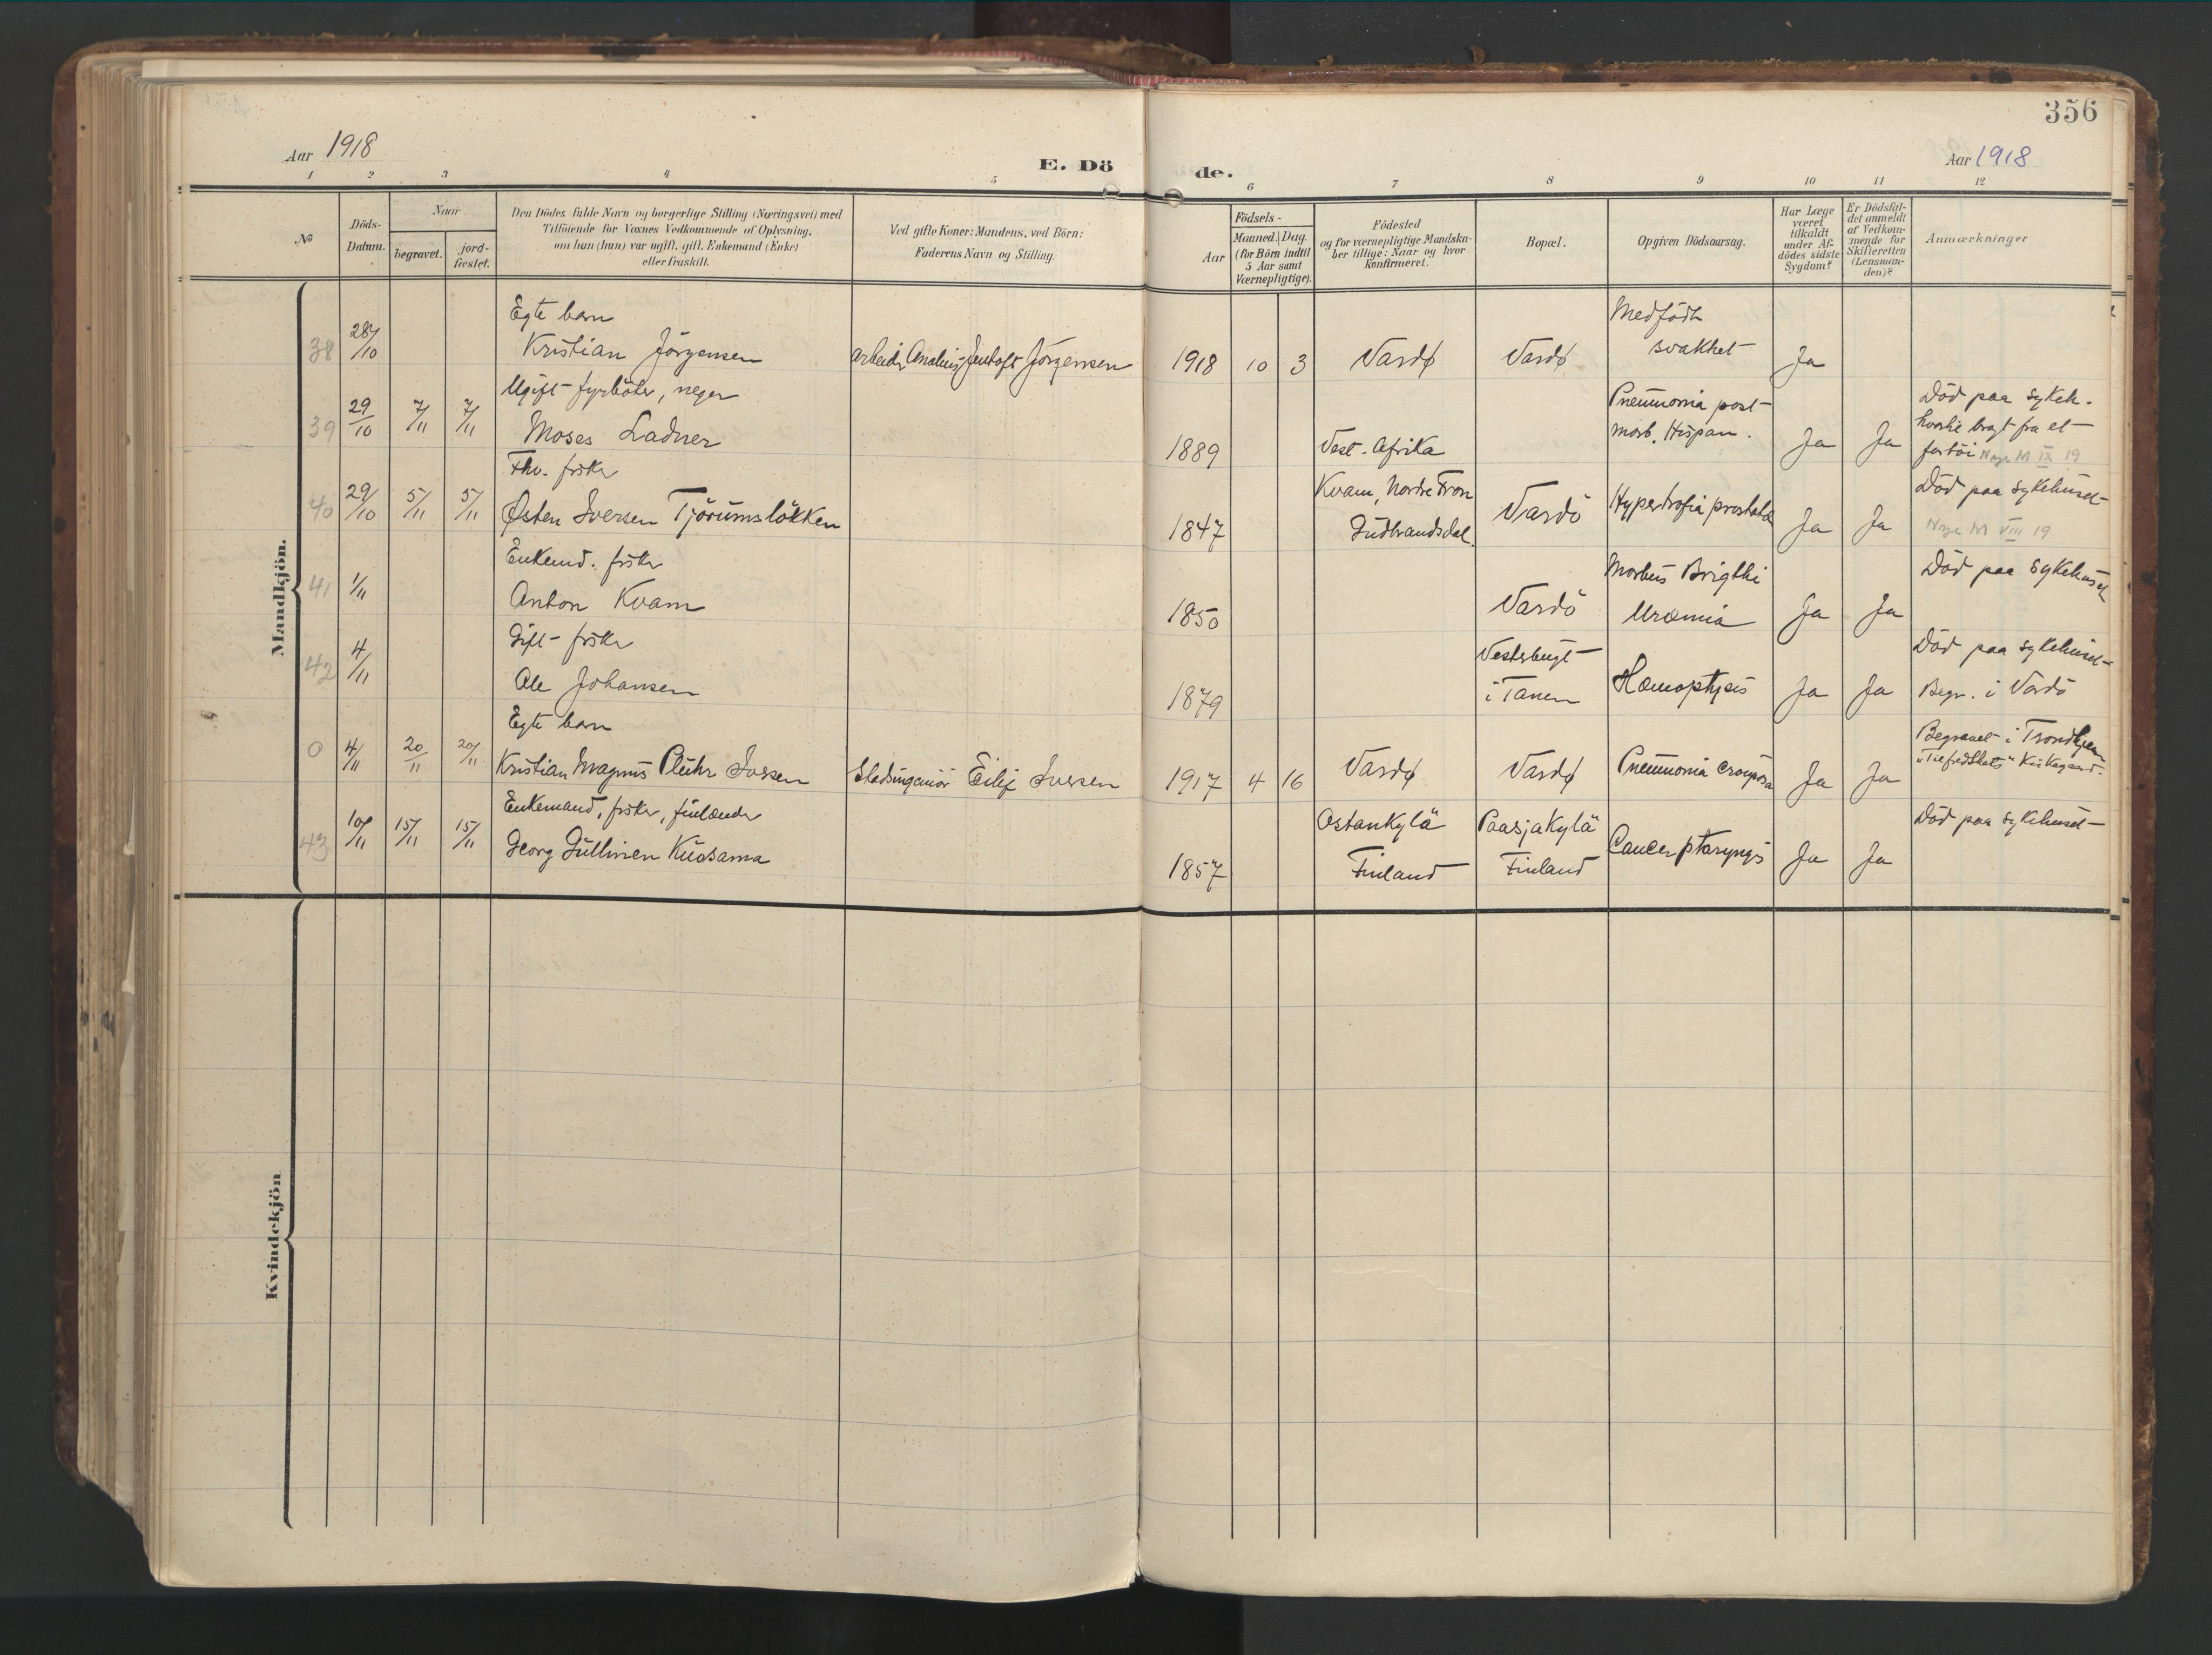 356
Aar 1918
E. Dö de.
Aar 1918
1 2 3 4 5 6 7 8 9 10 11 12
№
Döds-
Datum.
Naar
begravet.
jord-
fæstet.
Den Dödes fulde Navn og borgerlige Stilling (Næringsvei) med
Tilföiende for Voxnes Vedkommende af Oplysning,
om han (hun) var ugift, gift, Enkemand (Enke)
eller fraskilt.
Ved gifte Koner: Mandens, ved Börn:
Faderens Navn og Stilling.
Födsels-
Aar
Maaned. Dag.
(for Börn indtil
5 Aar samt
Værnepligtige).
Födested
og for værnepligtige Mandska-
ber tillige: Naar og hvor
konfirmeret.
Bopæl.
Opgiven Dödsaarsag.
Har Læge
været
tilkaldt
under Af-
dödes sidste
Sygdom?
Er Dödsfal-
det anmeldt
af Vedkom-
mende for
Skifteretten
(Lensman-
den)?
Anmærkninger
Mandkjön.
Egte barn Medfödt
38 28/10 Kristian Jörgensen arbeider Jentoft Jörgensen 1918 10 3 Vardø Vardø svakhet Ja
Ugift fyrböter, neger Pneumonia post Död paa sykeh.
39 29/10 7/11 7/11 Moses Ladner 1889 Vest-Afrika morb. Hispan. Ja Ja bragt fra et
fartöi IX 19
Fhv. fisker Kvam, Nordre Fron Död paa sykehuset
40 29/10 5/11 5/11 Østen Iversen Tjörumslökken 1847 Gudbrandsdal. Vardö Hypertrofia prostatæ Ja Ja M VIII 19
Enkemd. fisker Morbus Brigthi Död paa sykehuset
41 1/11 Anton Kvam 1850 Vardö Uræmia Ja Ja
Gift fisker Vesterbugt Död paa sykehuset
42 4/11 Ole Johansen 1879 i Tanen Hæmoptysis Ja Ja Begr. i Vardö
Egte barn Begravet i Trondhjem
0 4/11 20/11 20/11 Kristian Magnus Pluhr Iversen Stadsingeniör Eilif Iversen 1917 4 16 Vardø Vardø Pneumonia crouposa Ja Ja "Tilfredshets" Kirkegaard.
Enkemand, fisker, finlænder Ostankylä Paasjakylä Död paa sykehuset
43 10/11 15/11 15/11 Georg Gullinen Kuosama 1857 Finland Finland Cancer pharyngis Ja Ja
Kvindekjön